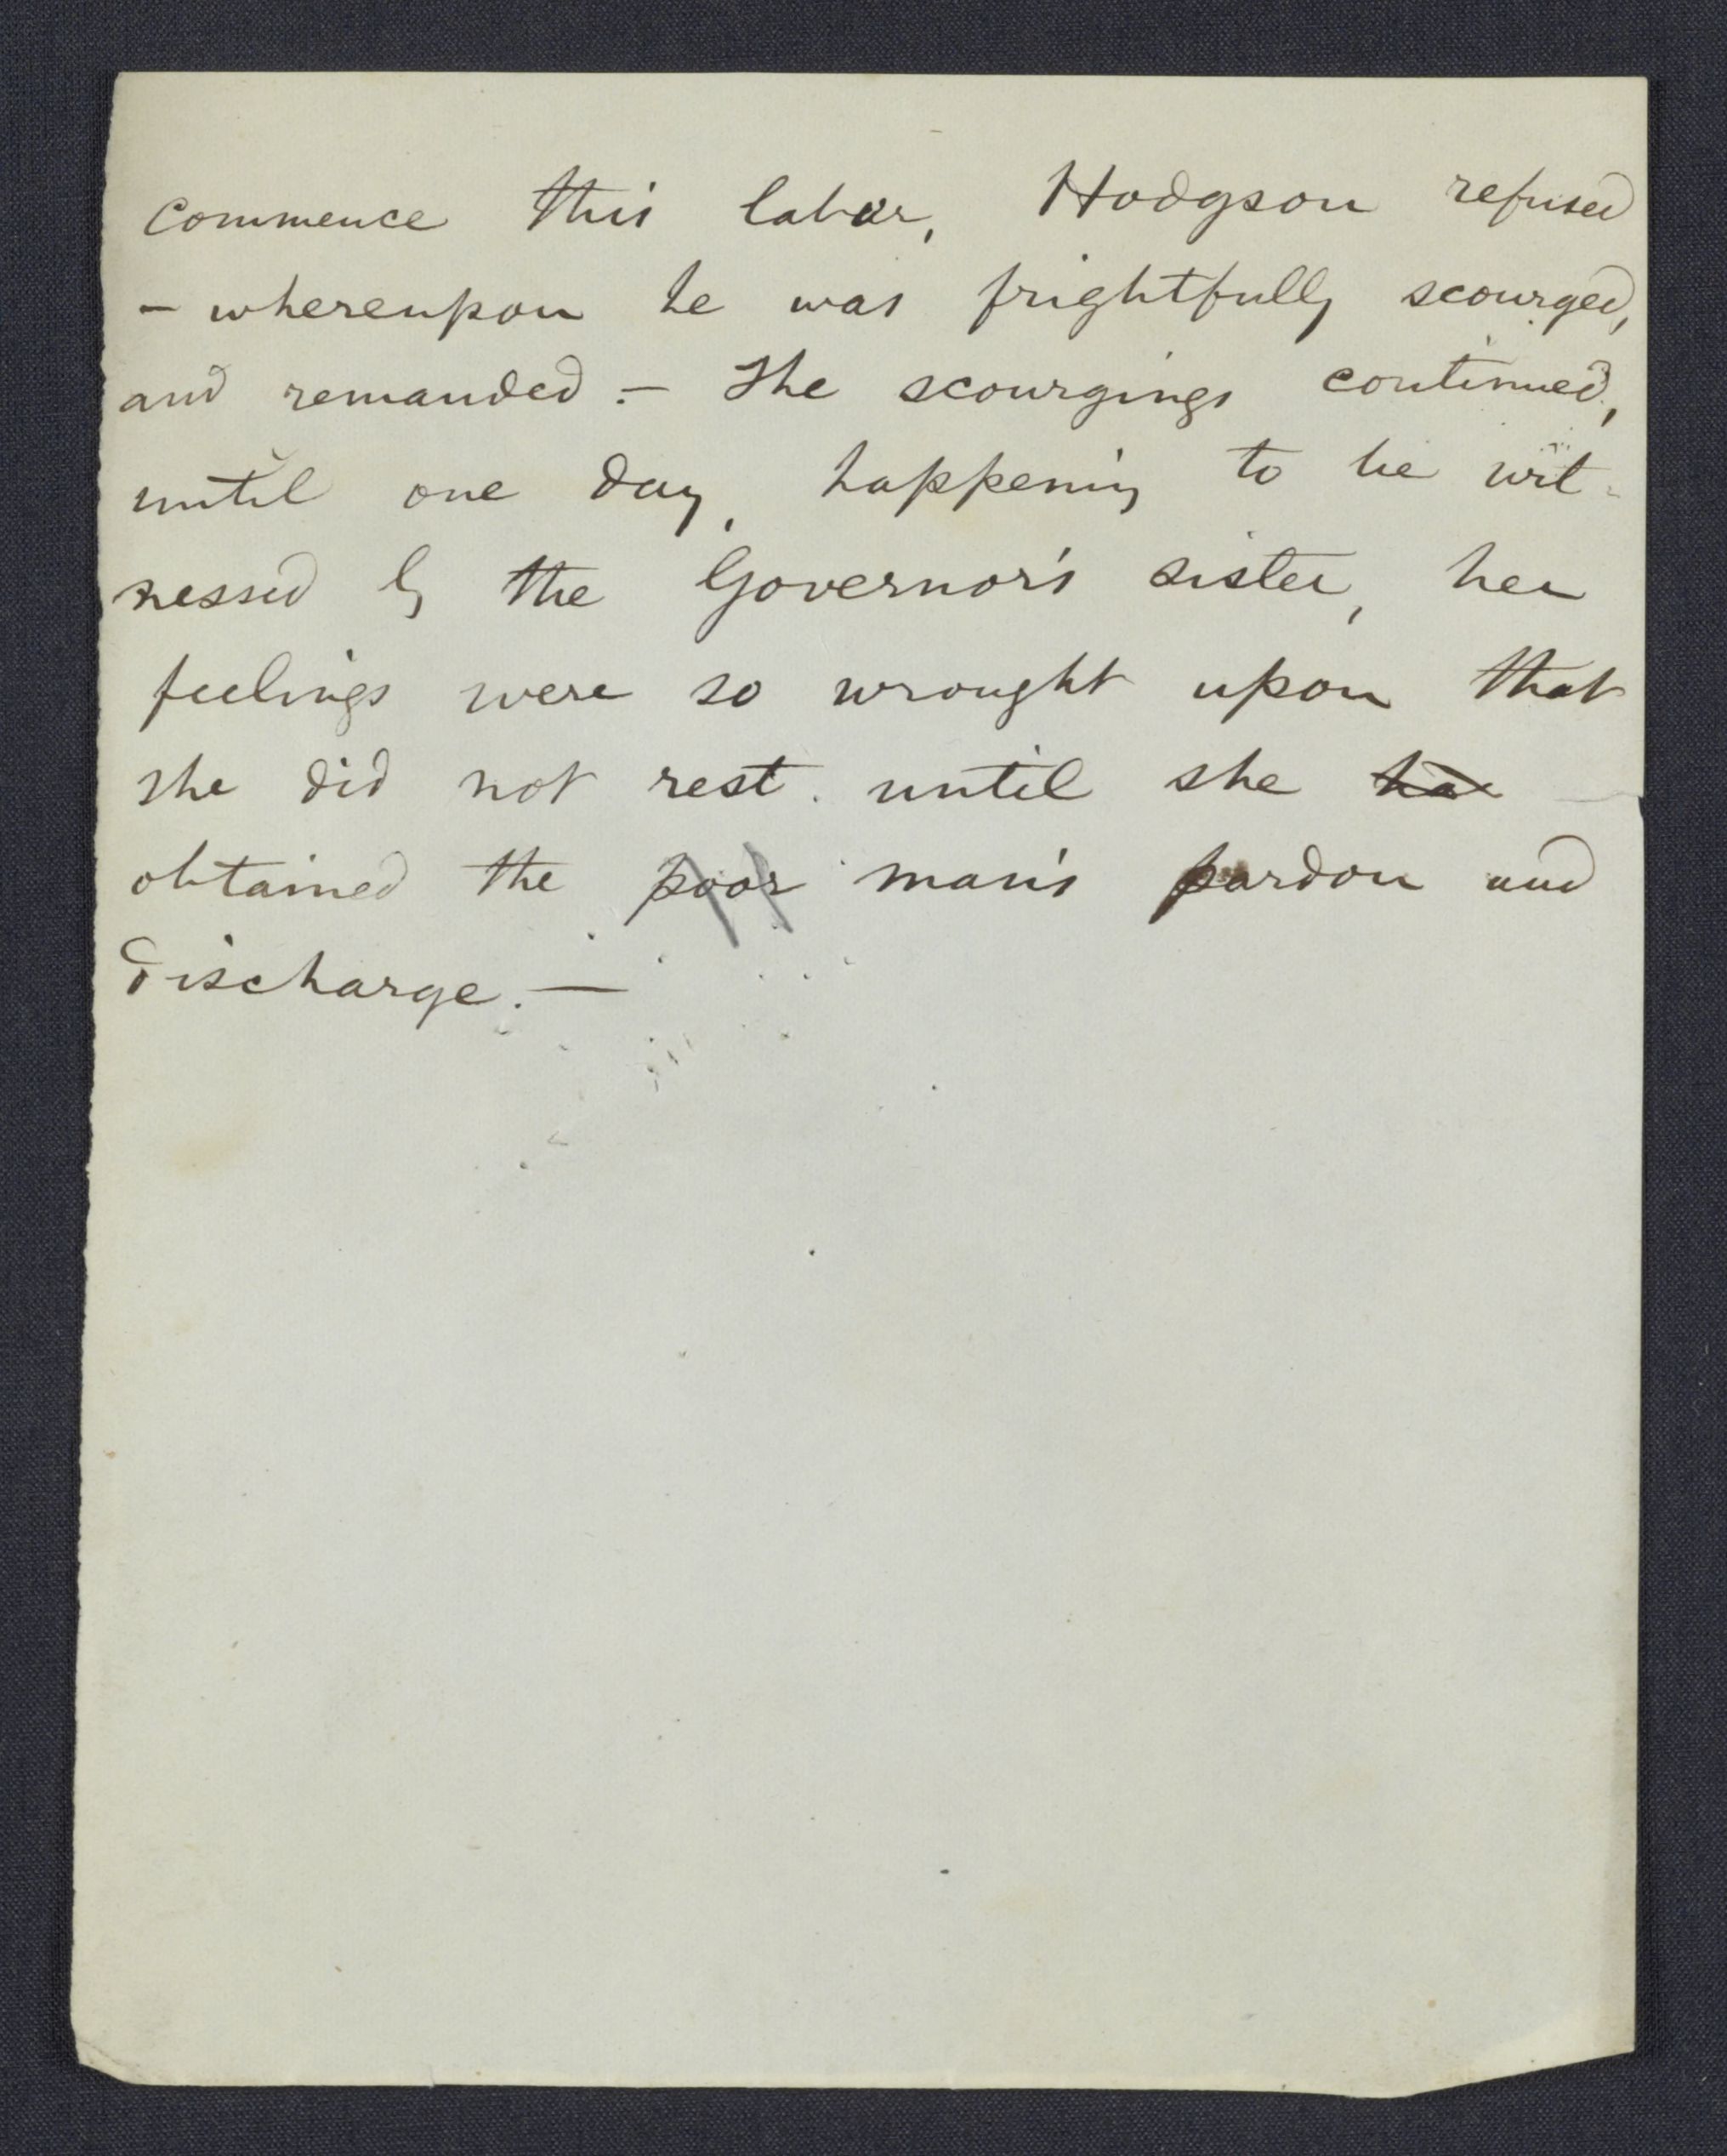 commence this labor, Hodgson refused
– whereupon he was frightfully scourged,
and remanded. – The scourgings continued,
until one day, happening to be wit-
nessed by the Governor's sister, her
feelings were so wrought upon that
she did not rest until she ha
obtained the poor man's pardon and
discharge. —